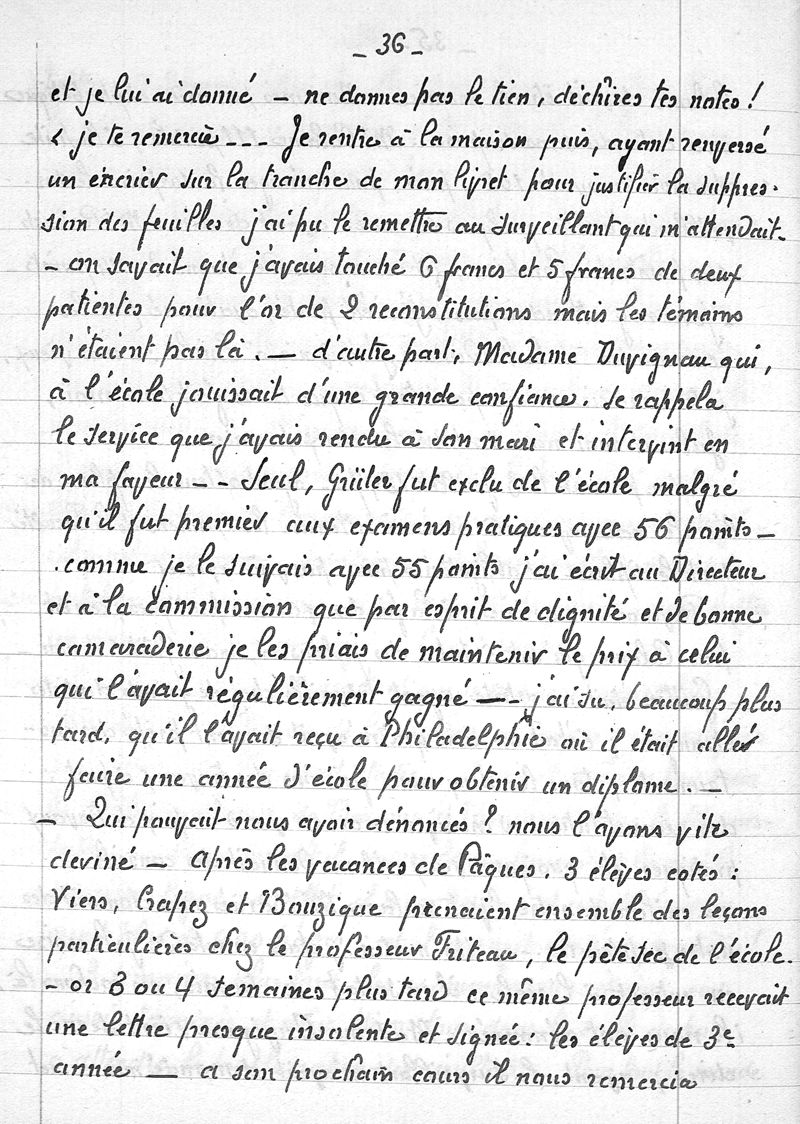 _ 36 _
et je lui ai donné — ne donnes pas le tien, déchires tes notes !
< je te remercie --- Je rentre à la maison puis, ayant renversé
un encrier sur la tranche de mon livret pour justifier la suppres-
sion des feuilles j'ai pu le remettre au surveillant qui m'attendait.
- on savait que j'avais touché 6 francs et 5 francs de deux
patientes pour l'or de 2 reconstitutions mais les témoins
n'étaient pas là. — d'autre part, Madame Duvignau qui,
à l'école jouissait d'une grande confiance. se rappela
le service que j'avais rendu à son mari et intervint en
ma faveur -- Seul, Grüter fut exclu de l'école malgré
qu'il fut premier aux examens pratiques avec 56 points —
.comme je le suivais avec 55 points j'ai écrit au Directeur
et à la Commission que par esprit de dignité et de bonne
camaraderie je les priais de maintenir le prix à celui
qui l'avait régulièrement gagné — - j'ai su, beaucoup plus
tard, qu'il l'avait reçu à Philadelphie où il était allé
faire une année d'école pour obtenir un diplome. —
- Qui pouvait nous avoir dénoncés ? nous l'avons vite
deviné — après les vacances de Pâques. 3 élèves cotés :
Viers, Crapez et Bouzique prenaient ensemble des leçons
particulières chez le professeur Friteau, le pète sec de l'école.
- or 3 ou 4 semaines plus tard ce même professeur recevait
une lettre presque insolente et signée : les élèves de 3e
année — a son prochain cours il nous remercia